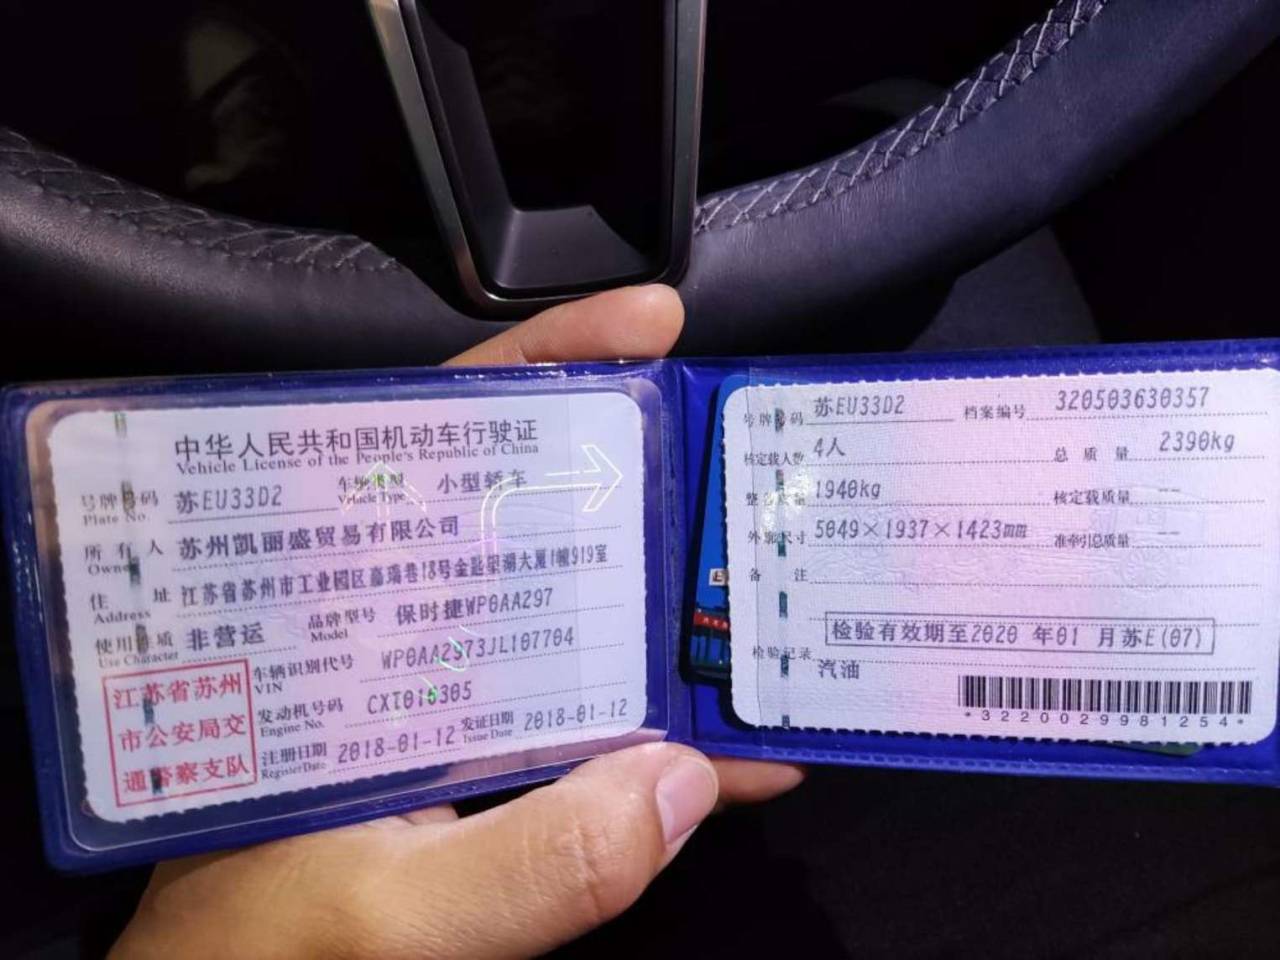 中华人民共和国机动车行驶证
Vehicle License of the People's Republic of China
号牌号码 苏EU33D2 车辆类型 小型轿车
Plate No. Vehicle Type
所有人 苏州凯丽盛贸易有限公司
Owner
住址 江苏省苏州市工业园区嘉瑞巷18号金匙望湖大厦1幢919室
Address
使用性质 非营运 品牌型号 保时捷WP0AA297
Use Character Model
车辆识别代号 WP0AA2973JL107704
VIN
发动机号码 CXT016305
Engine No.
注册日期 2018-01-12 发证日期 2018-01-12
Register Date Issue Date
江苏省苏州
市公安局交
通警察支队
号牌号码 苏EU33D2 档案编号 320503630357
核定载人数 4人 总质量 2390kg
整备质量 1940kg 核定载质量 --
外廓尺寸 5049×1937×1423mm 准牵引总质量 --
备注
检验有效期至2020 年01 月苏E(07)
检验记录
汽油
*3220029981254*